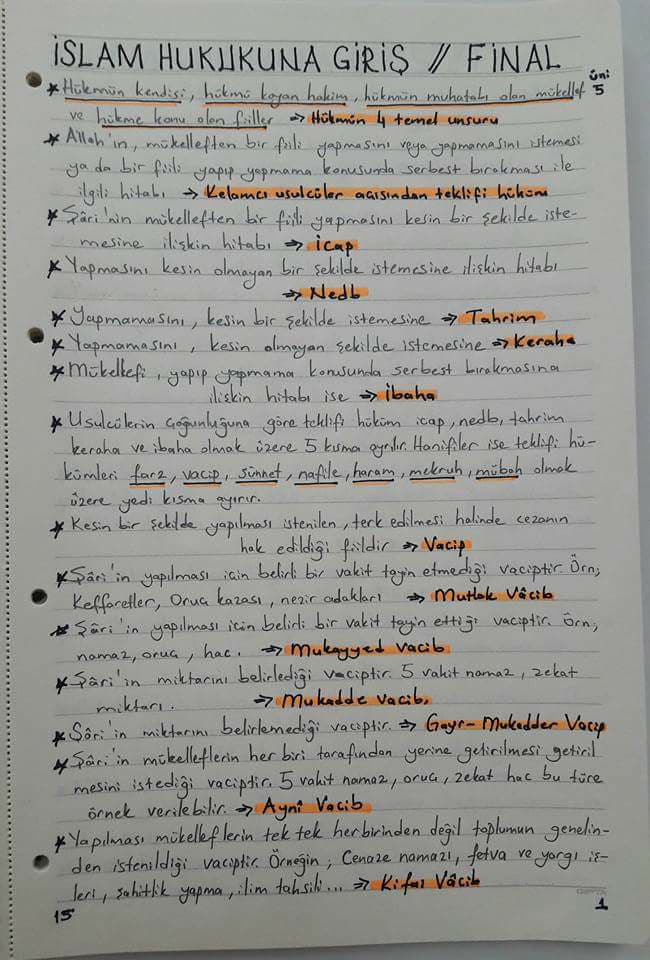 İSLAM HUKUKUNA GİRİŞ // FİNAL
üni 5
* Hükmün kendisi, hükmü koyan hakim, hükmün muhatabı olan mükellef
ve hükme konu olan fiiller => Hükmün 4 temel unsuru
* Allah'ın, mükelleften bir fiili yapmasını veya yapmamasını istemesi
ya da bir fiili yapıp yapmama konusunda serbest bırakması ile
ilgili hitabı => Kelamcı usulcüler açısından teklifi hüküm
* Şâri'nin mükelleften bir fiili yapmasını kesin bir şekilde iste-
mesine ilişkin hitabı => İcap
* Yapmasını kesin olmayan bir şekilde istemesine ilişkin hitabı
=> Nedb
* Yapmamasını, kesin bir şekilde istemesine => Tahrim
* Yapmamasını, kesin olmayan şekilde istemesine => Keraha
* Mükellefi, yapıp yapmama konusunda serbest bırakmasına
ilişkin hitabı ise => İbaha
* Usulcülerin çoğunluğuna göre teklifi hüküm icap, nedb, tahrim
keraha ve ibaha olmak üzere 5 kısma ayrılır. Hanifiler ise teklifi hü-
kümleri farz, vacip, sünnet, nafile, haram, mekruh, mübah olmak
üzere yedi kısma ayırır.
* Kesin bir şekilde yapılması istenilen, terk edilmesi halinde cezanın
hak edildiği fiildir => Vacip
* Şâri'in yapılması için belirli bir vakit tayin etmediği vaciptir. Örn;
Keffaretler, Oruç kazası, nezir adakları => Mutlak Vâcib
* Şâri'in yapılması için belirli bir vakit tayin ettiği vaciptir. Örn;
namaz, oruç, hac. => Mukayyed vacib
* Şâri'in miktarını belirlediği vaciptir. 5 vakit namaz, zekat
miktarı. => Mukadde vacib.
* Şâri'in miktarını belirlemediği vaciptir. => Gayr-Mukadder Vacip
* Şâri'in mükelleflerin her biri tarafından yerine getirilmesi getiril
mesini istediği vaciptir. 5 vakit namaz, oruç, zekat hac bu türe
örnek verilebilir. => Aynî Vacib
* Yapılması mükelleflerin tek tek herbirinden değil toplumun genelin-
den istenildiği vaciptir. Örneğin; Cenaze namazı, fetva ve yargı iş-
leri, şahitlik yapma, ilim tahsili... => Kifaî Vâcib
15
1